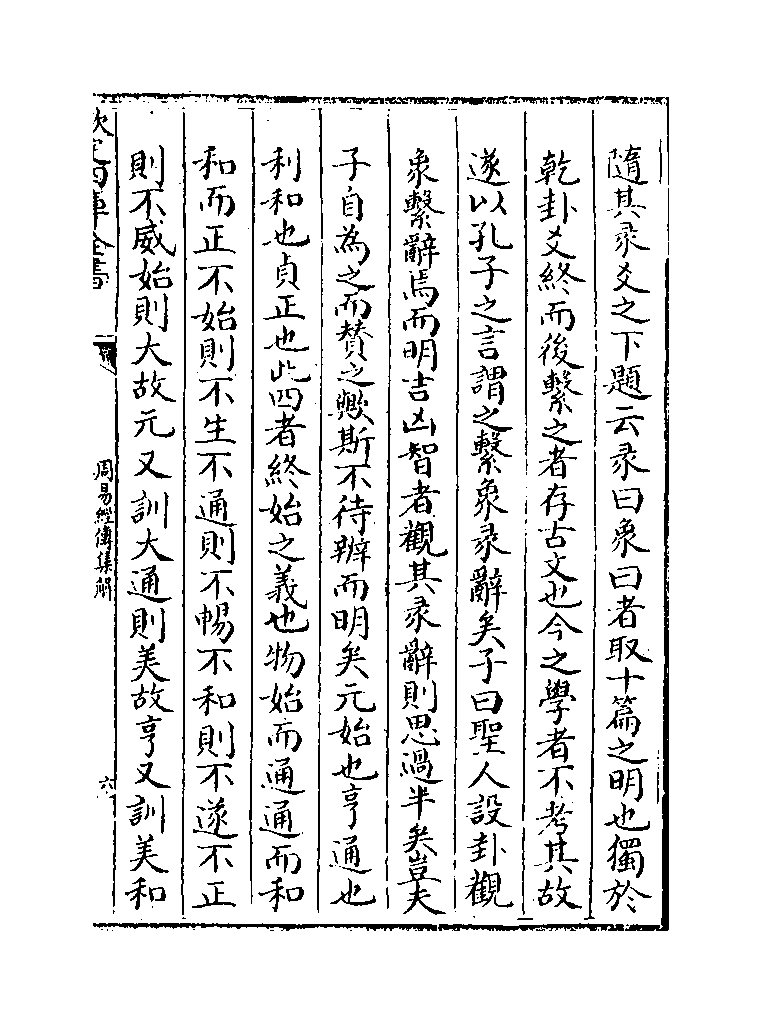 隨其彖爻之下題云彖曰象曰者取十篇之明也獨於
乾卦爻終而後繫之者存古文也今之學者不考其故
遂以孔子之言謂之繫象彖辭矣子曰聖人設卦觀
象繫辭焉而明吉凶智者觀其彖辭則思過半矣豈夫
子自為之而賛之歟斯不待辨而明矣元始也亨通也
利和也貞正也此四者終始之義也物始而通通而和
和而正不始則不生不通則不暢不和則不遂不正
則不威始則大故元又訓大通則美故亨又訓美和
欽定四庫全書
周易經傳集解
六